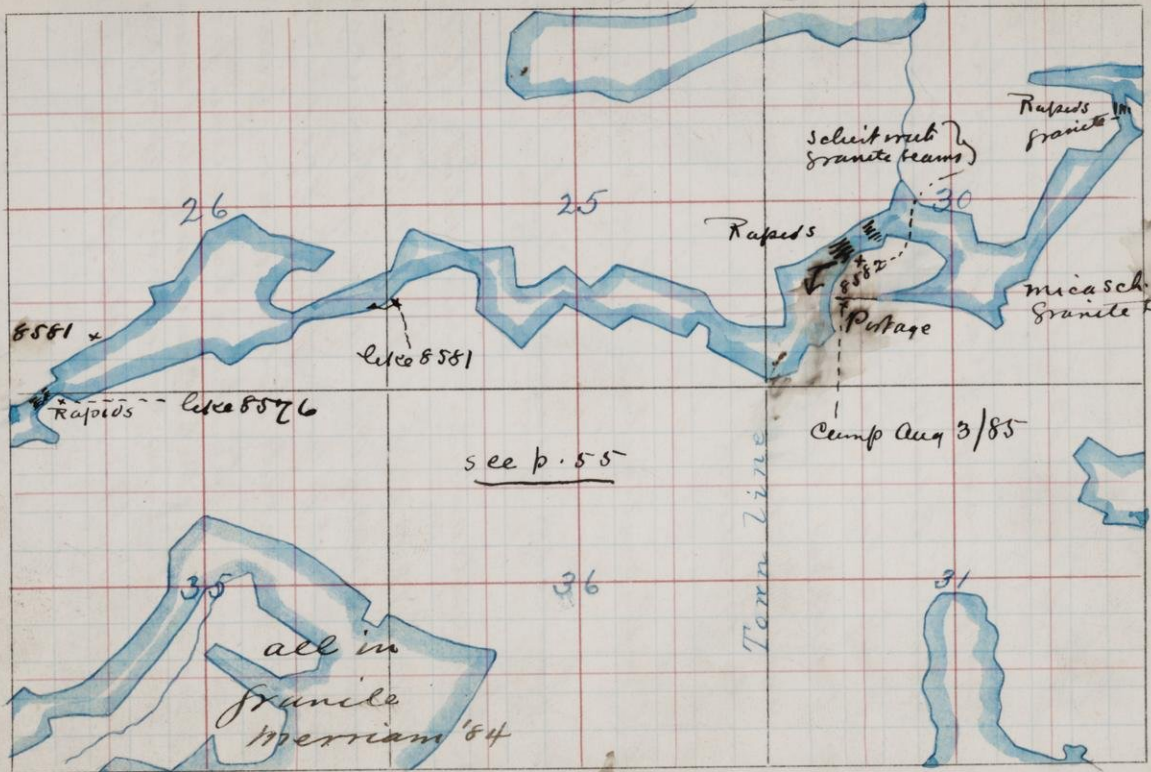 Rapids
granite
schist with
granite seams
26
25
30
Rapids
8582
8581
micasch.
granite
Portage
like 8581
Rapids
like 8576
Camp Aug 3/85
see p. 55
Town line
35
36
31
all in
granite
Merriam '84